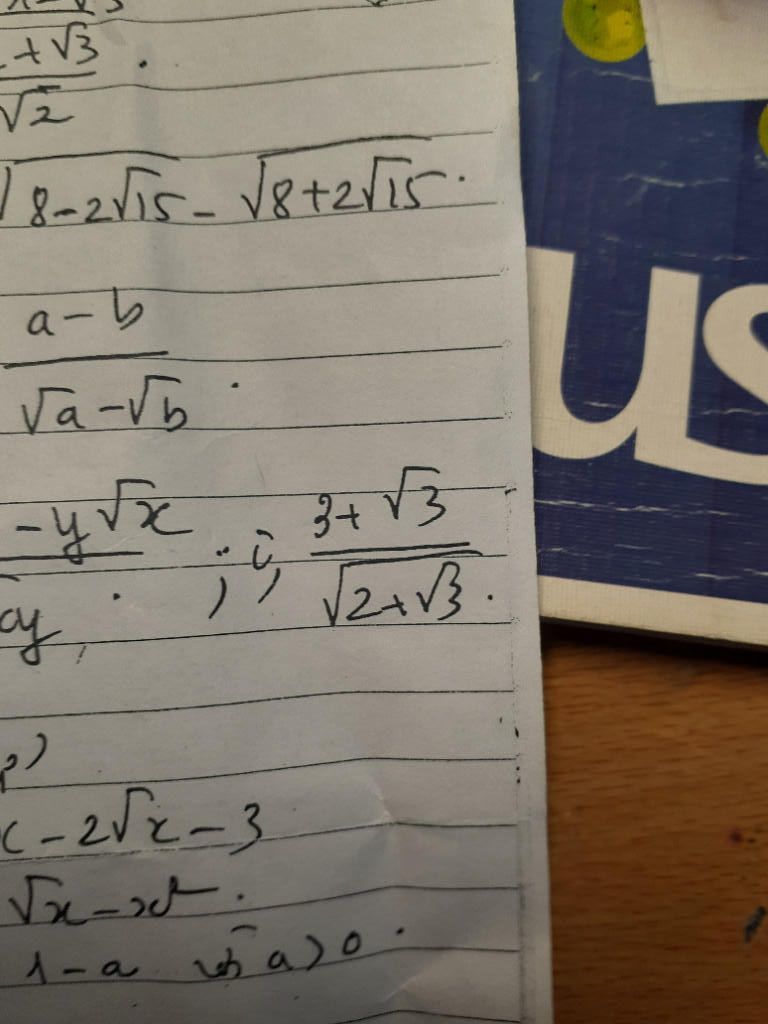 + √3 .
√2
√8 - 2√15 - √8 + 2√15 .
a - b
√a - √b .
- y √x ; i, 3 + √3
y . √2 + √3 .
)
- 2√x - 3
√x - x² .
1 - a với a > 0 .
us